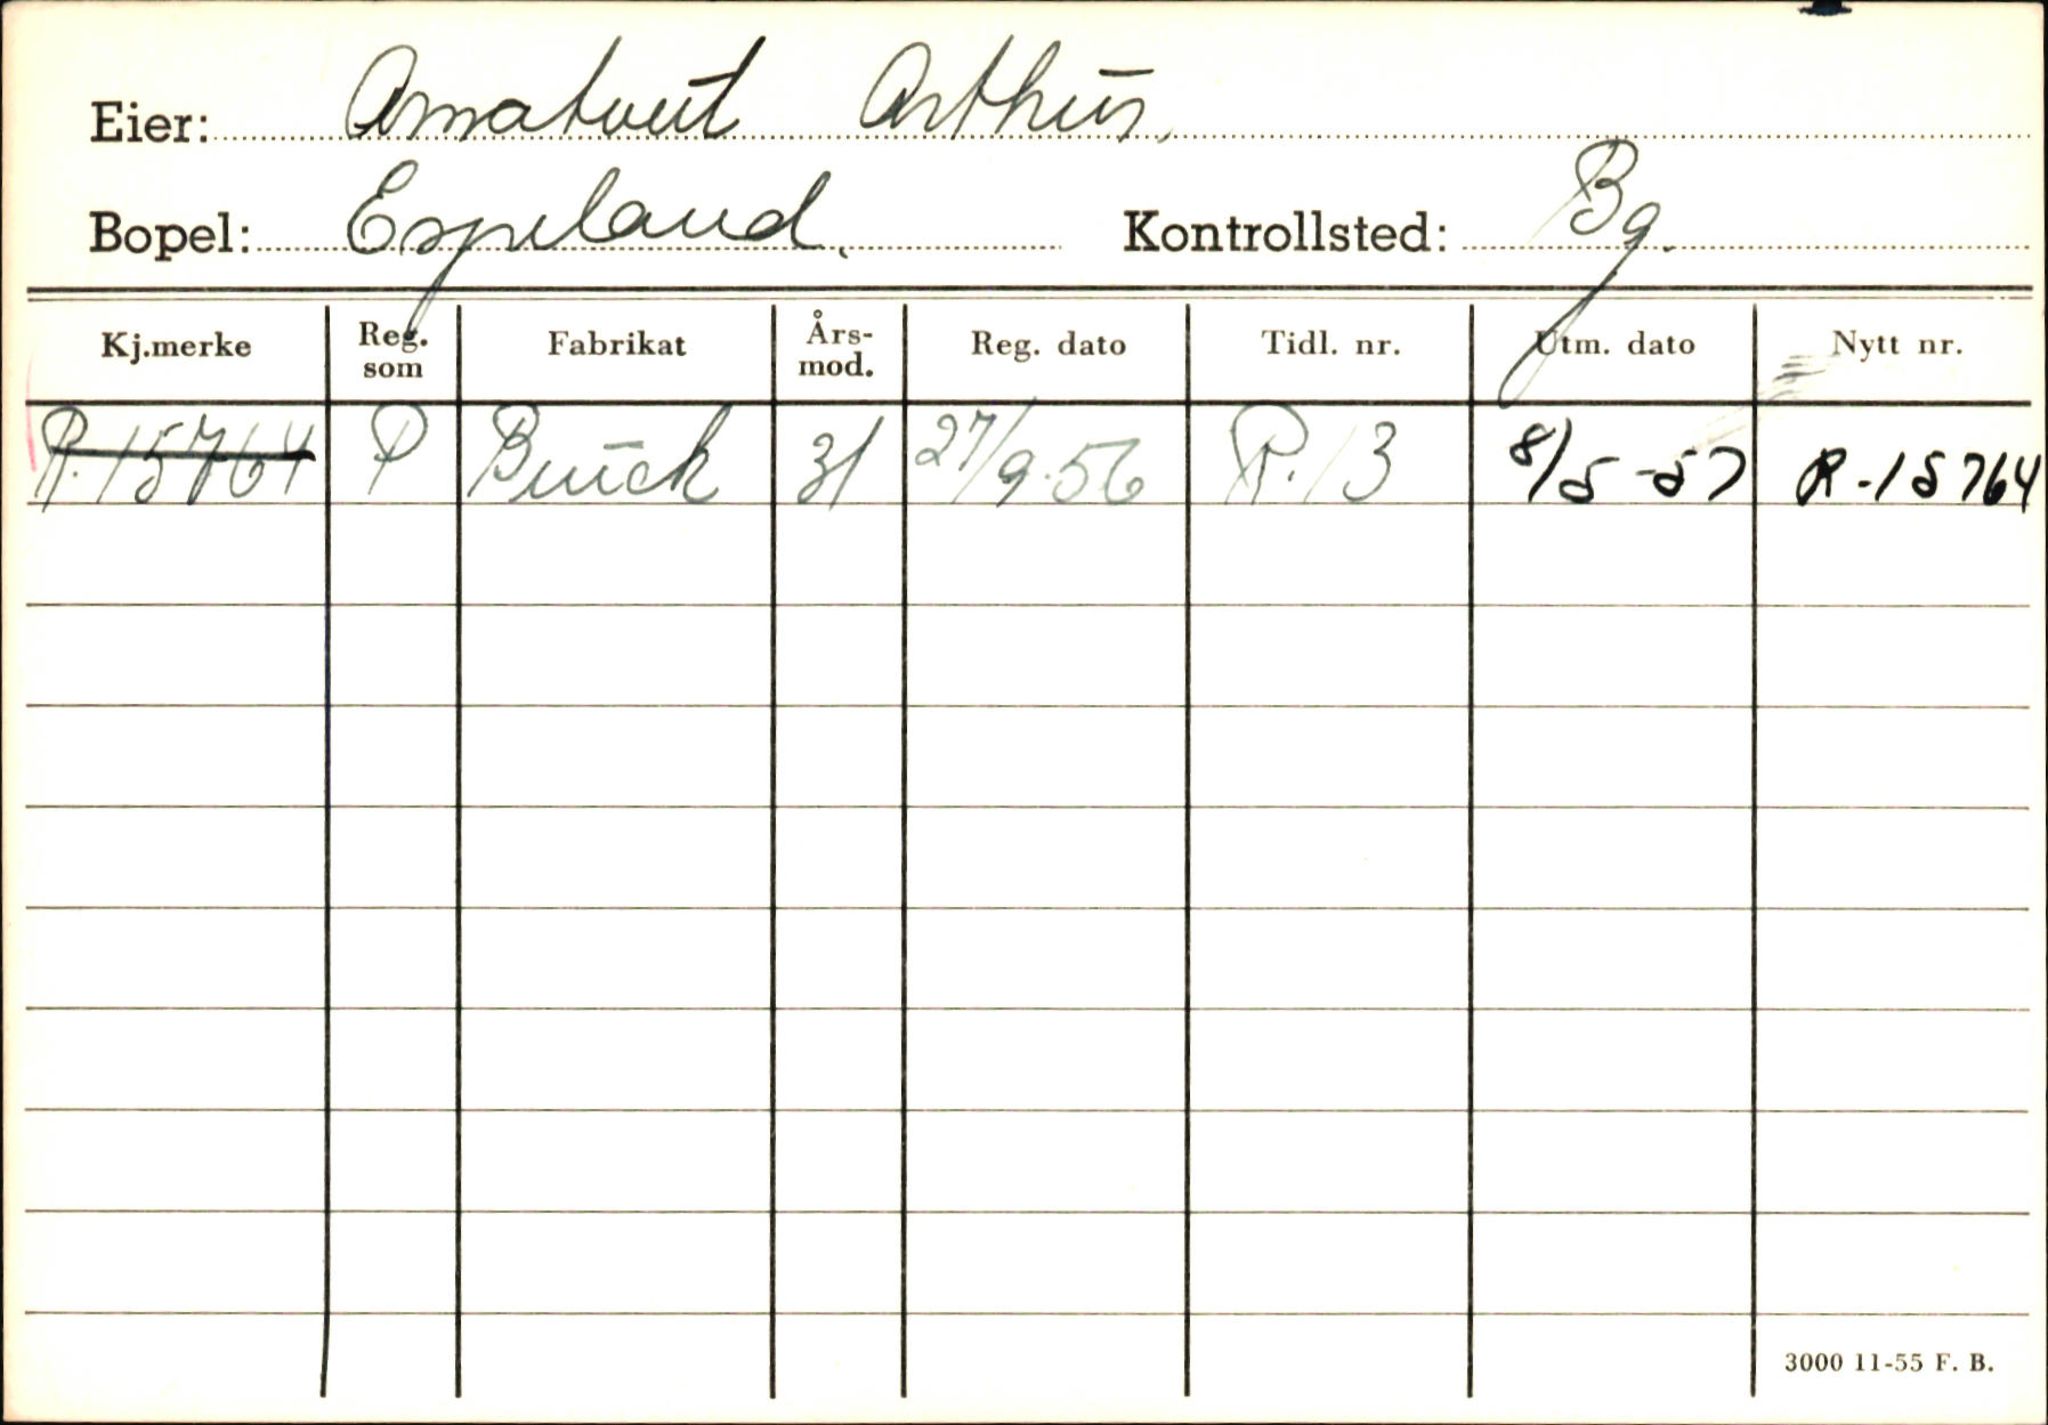 Eier: Amatveit Arthur.
Bopel: Espeland. Kontrollsted: Bg.
Kj.merke Reg. som Fabrikat Års-mod. Reg. dato Tidl. nr. Utm. dato Nytt nr.
R.15764 P Buick 31 27/9.56 R.13 8/5-57 R-15764
3000 11-55 F. B.